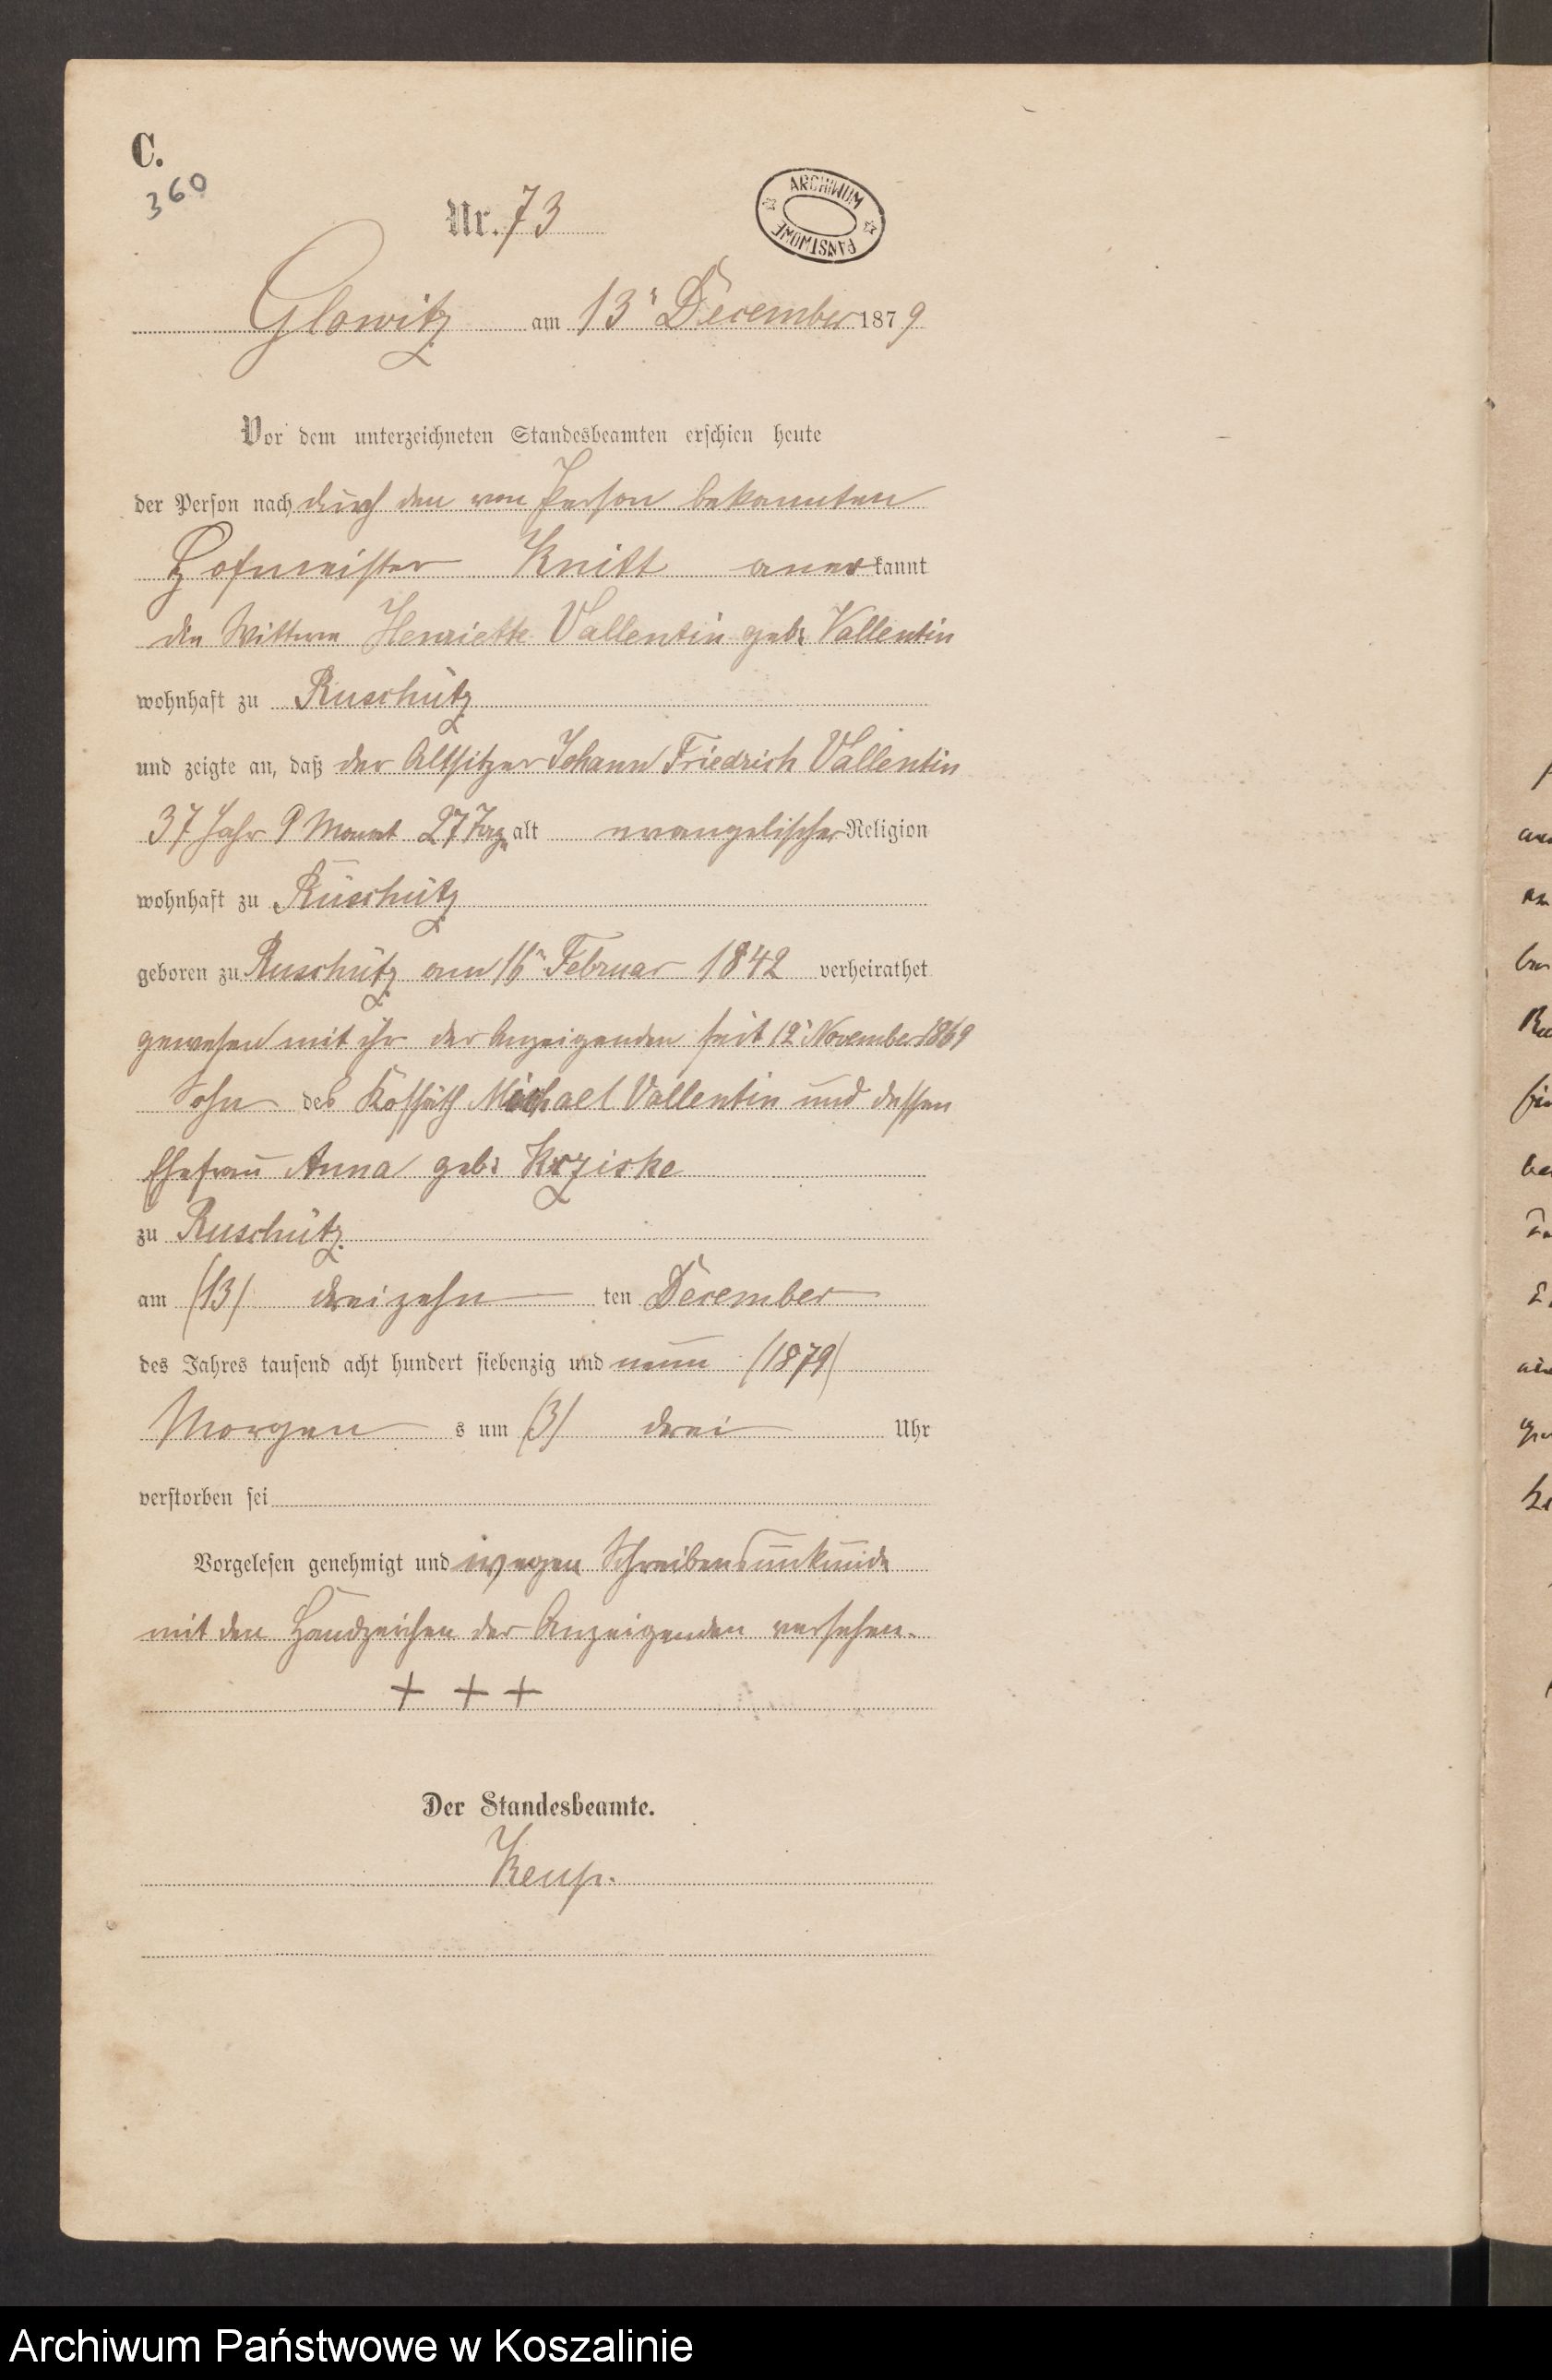 C.
360
Nr. 73
ARCHIWUM PAŃSTWOWE
Glowitz am 13t December 1879
Vor dem unterzeichneten Standesbeamten erschien heute
der Person nach durch den von Person bekannten
Hofmeister Knitt anerkannt
die Wittwe Henriette Vallentin geb: Vallentin
wohnhaft zu Ruschütz
und zeigte an, daß der Altsitzer Johann Friedrich Vallentin
37 Jahr 9 Monat 27 Tage alt evangelischer Religion
wohnhaft zu Ruschütz
geboren zu Ruschütz am 16n Februar 1842 verheirathet
gewesen mit ihr der Anzeigenden seit 12t November 1869
Sohn des Kossäth Michael Vallentin und dessen
Ehefrau Anna geb: Krziske
zu Ruschütz
am (13) dreizehn ten December
des Jahres tausend acht hundert siebenzig und neun (1879)
Morgen s um (3) drei Uhr
verstorben sei
Vorgelesen genehmigt und wegen Schreibensunkunde
mit den Handzeichen der Anzeigenden versehen.
+ + +
Der Standesbeamte.
Keup.
Archiwum Państwowe w Koszalinie